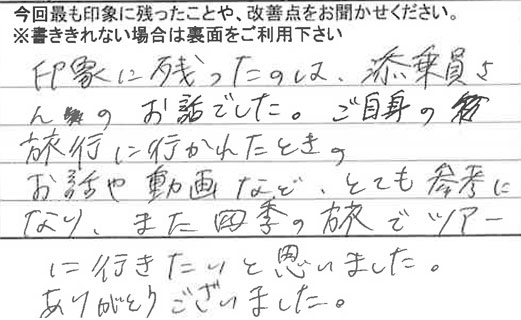 今回最も印象に残ったことや、改善点をお聞かせください。
※書ききれない場合は裏面をご利用下さい
印象に残ったのは、添乗員さ
んのお話でした。ご自身の
旅行に行かれたときの
お話や動画など、とても参考に
なり、また四季の旅でツアー
に行きたいと思いました。
ありがとうございました。